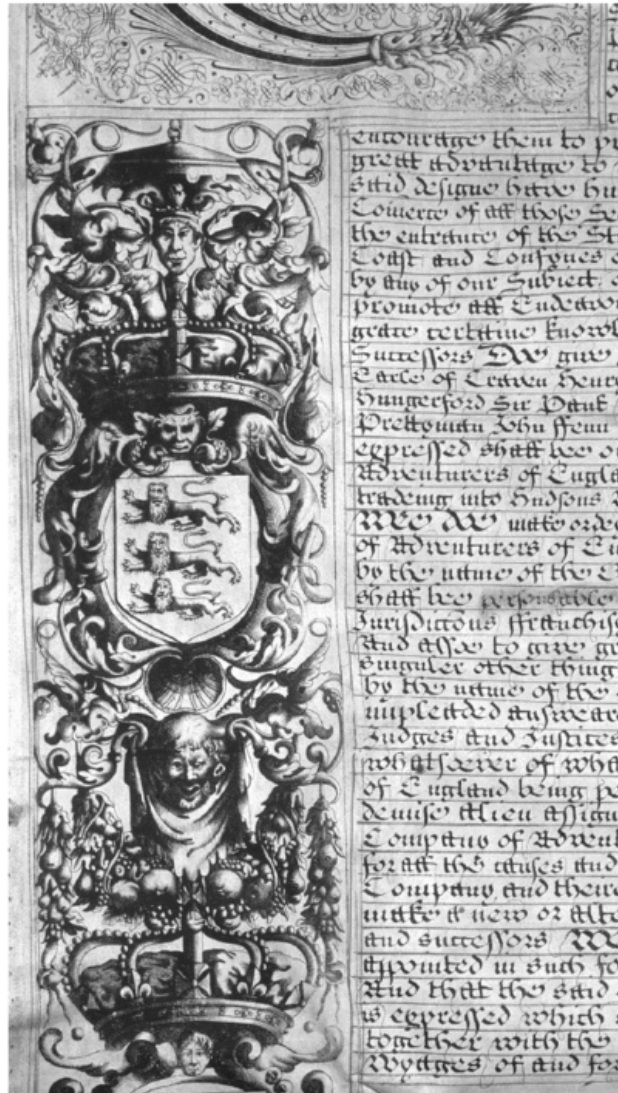 encourage them to pr
great advantage to
said designe have hu
Comerce of all those Se
the entrance of the St
Coast and Confynes o
by any of our Subiect
promote all Endeavo
greate certaine knowl
Successors Doe give
Earle of Craven Henr
Hungerford Sir Paul
Prettyman John ffenn
expressed shall bee o
Adventurers of Engla
tradeing into Hudsons
Wee Doe make orde
of Adventurers of En
by the name of the
shall bee personable
Jurisdiccons ffranchis
And alsoe to give gr
singuler other thing
by the name of the
impleaded answeare
Judges and Justices
whatsoever of wha
of England being pe
demise alien assigne
Company of Advent
for all the causes and
Company and theire
make a new or alte
and successors Wee
appointed in such fo
And that the said
is expressed which
together with the
Voyages of and for